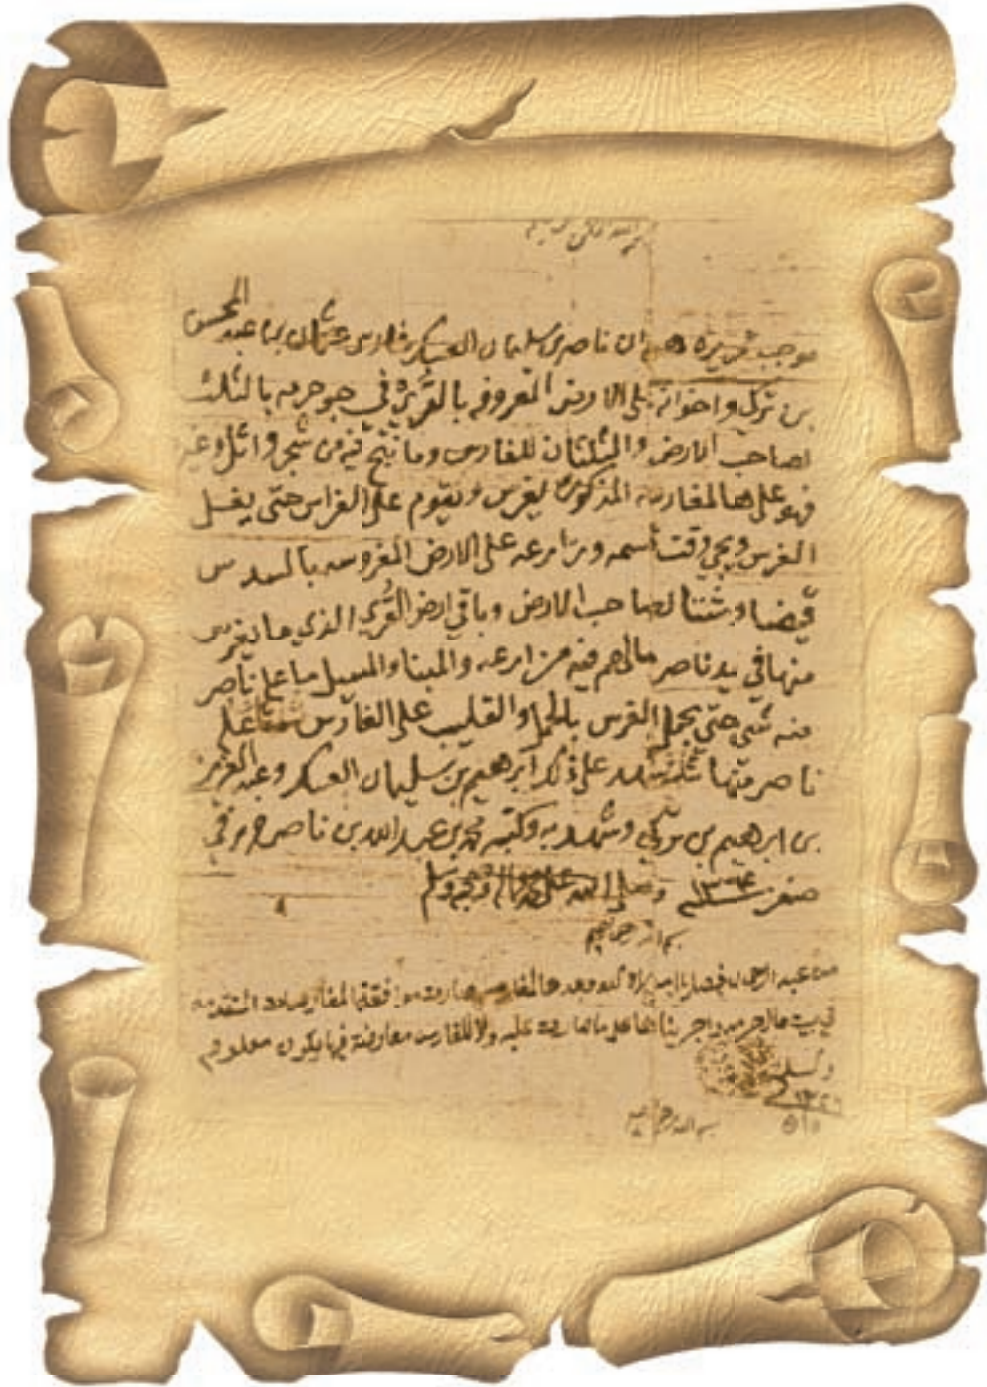 بسم الله الرحمن الرحيم
موجب تحريره هو ان ناصر بن سليمان العسكر غارس عثمان بن عبد المحسن
بن تركي واخوانه على الارض المعروفه بالقري في جو حرمه بالثلث
لصاحب الارض والثلثان للغارس وما نتج فيه من شجر واثل وغير
فهو على هالمغارسه المذكوره يغرس ويقوم على الغراس حتى يغسل
الغرس ويجي وقت اسمه ومزارعه على الارض المغروسه بالسدس
قيضا وشتا لصاحب الارض وباقي ارض القري الذي ما يغرس
منها في يد ناصر مالهم فيه مزارعه والمبنا والمسيل ما على ناصر
منه شي حتى يحمل الغرس بالحمل والقليب على الغارس على
ناصر منها شهد على ذلك ابرهيم بن سليمان العسكر وعبد العزيز
بن ابرهيم بن تركي وشهد به وكتبه محمد بن عبد الله بن ناصر في
صفر وصلى الله على محمد واله وصحبه وسلم
بسم الله الرحمن الرحيم
من عبد الرحمن بعد هالمغارسه صارت موافقة المغارسات المتقدمه
في بيت حال حرمه واجريناها على ما تعارفت عليه ولا للغارس معارضة فيما يكون معلوم
والسلام
بسم الله الرحمن